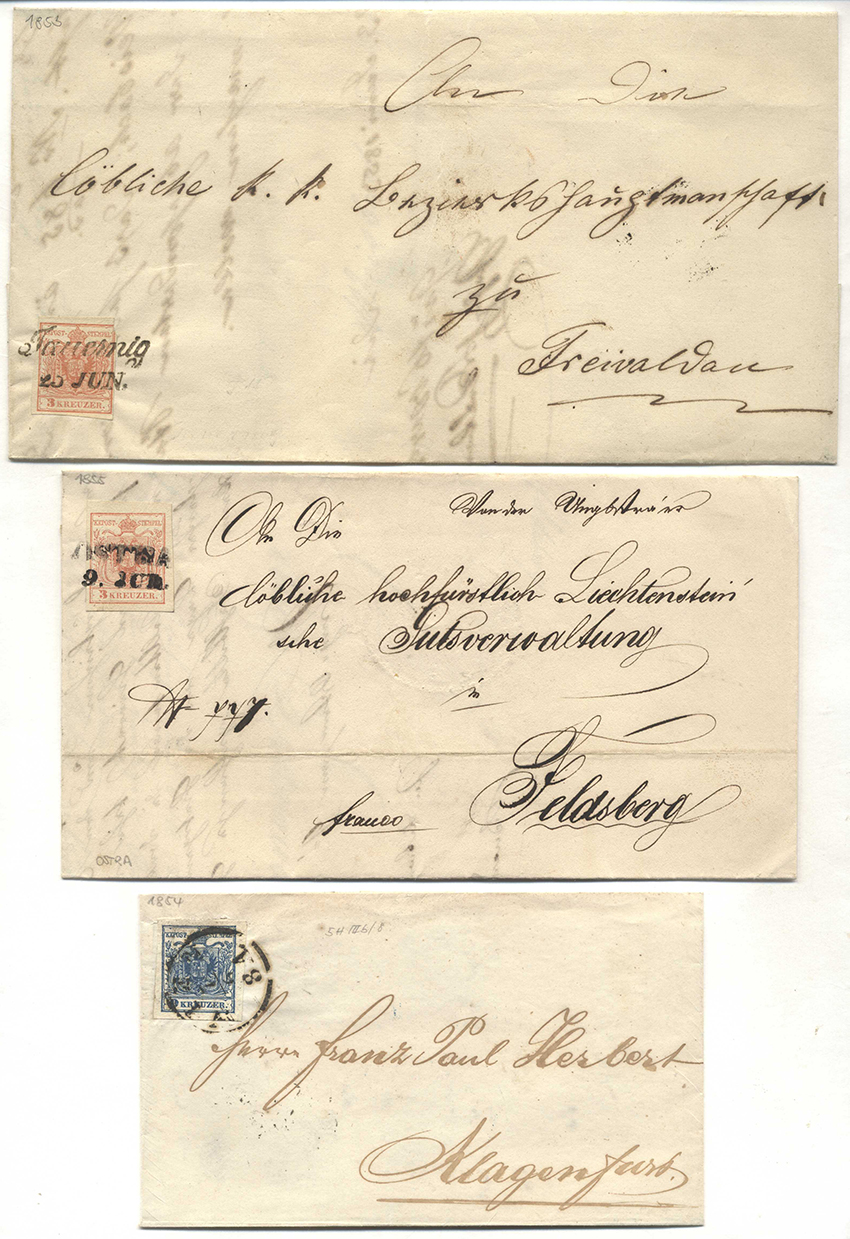 1855
An Die
löbliche k. k. Bezierkshauptmanschaft
zu
Freivaldau
KKPOST-STEMPEL
Jauernig
25 JUN.
3 KREUZER.
1855
Von der
An Die
löbliche hochfürstlich Liechtenstein'
sche Gutsverwaltung
in
Feldsberg
franco
KKPOST-STEMPEL
9.
3 KREUZER.
OSTRA
1854
KKPOST-STEMPEL
9 KREUZER.
Herrn Franz Paul Herbert
Klagenfurt.